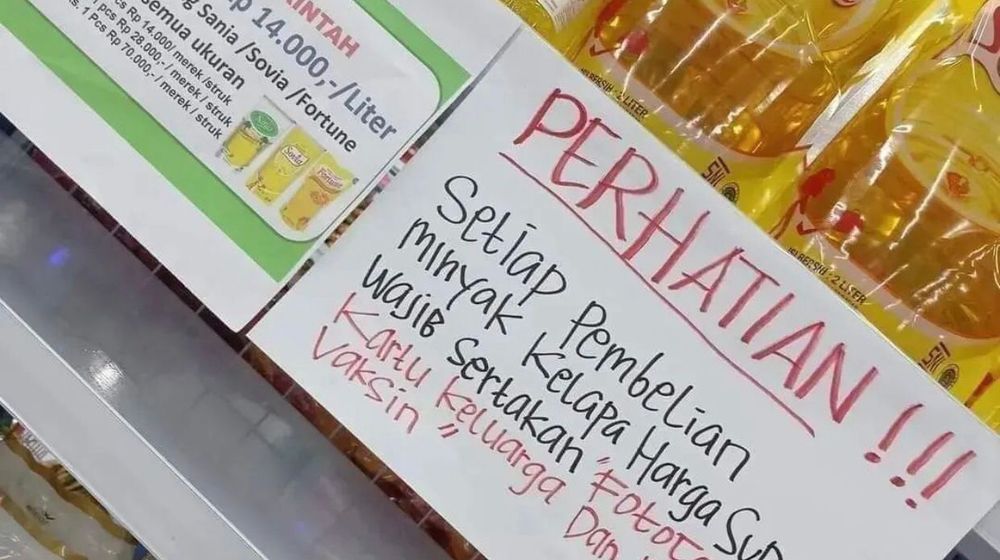 RINTAH
Rp 14.000,-/Liter
Sania /Sovia /Fortune
semua ukuran
1 Pcs Rp 14.000/ merek /struk
pcs Rp 28.000,- / merek / struk
1 Pcs Rp 70.000,- / merek / struk
Sovia
Fortune
PERHATIAN !!!
Setiap Pembelian
Minyak Kelapa Harga Sub
Wajib Sertakan "Fotoco
Kartu Keluarga Dan
Vaksin "
ISI BERSIH : 2 LITER
SNI
ISI BERSIH : 2 LITER
SNI